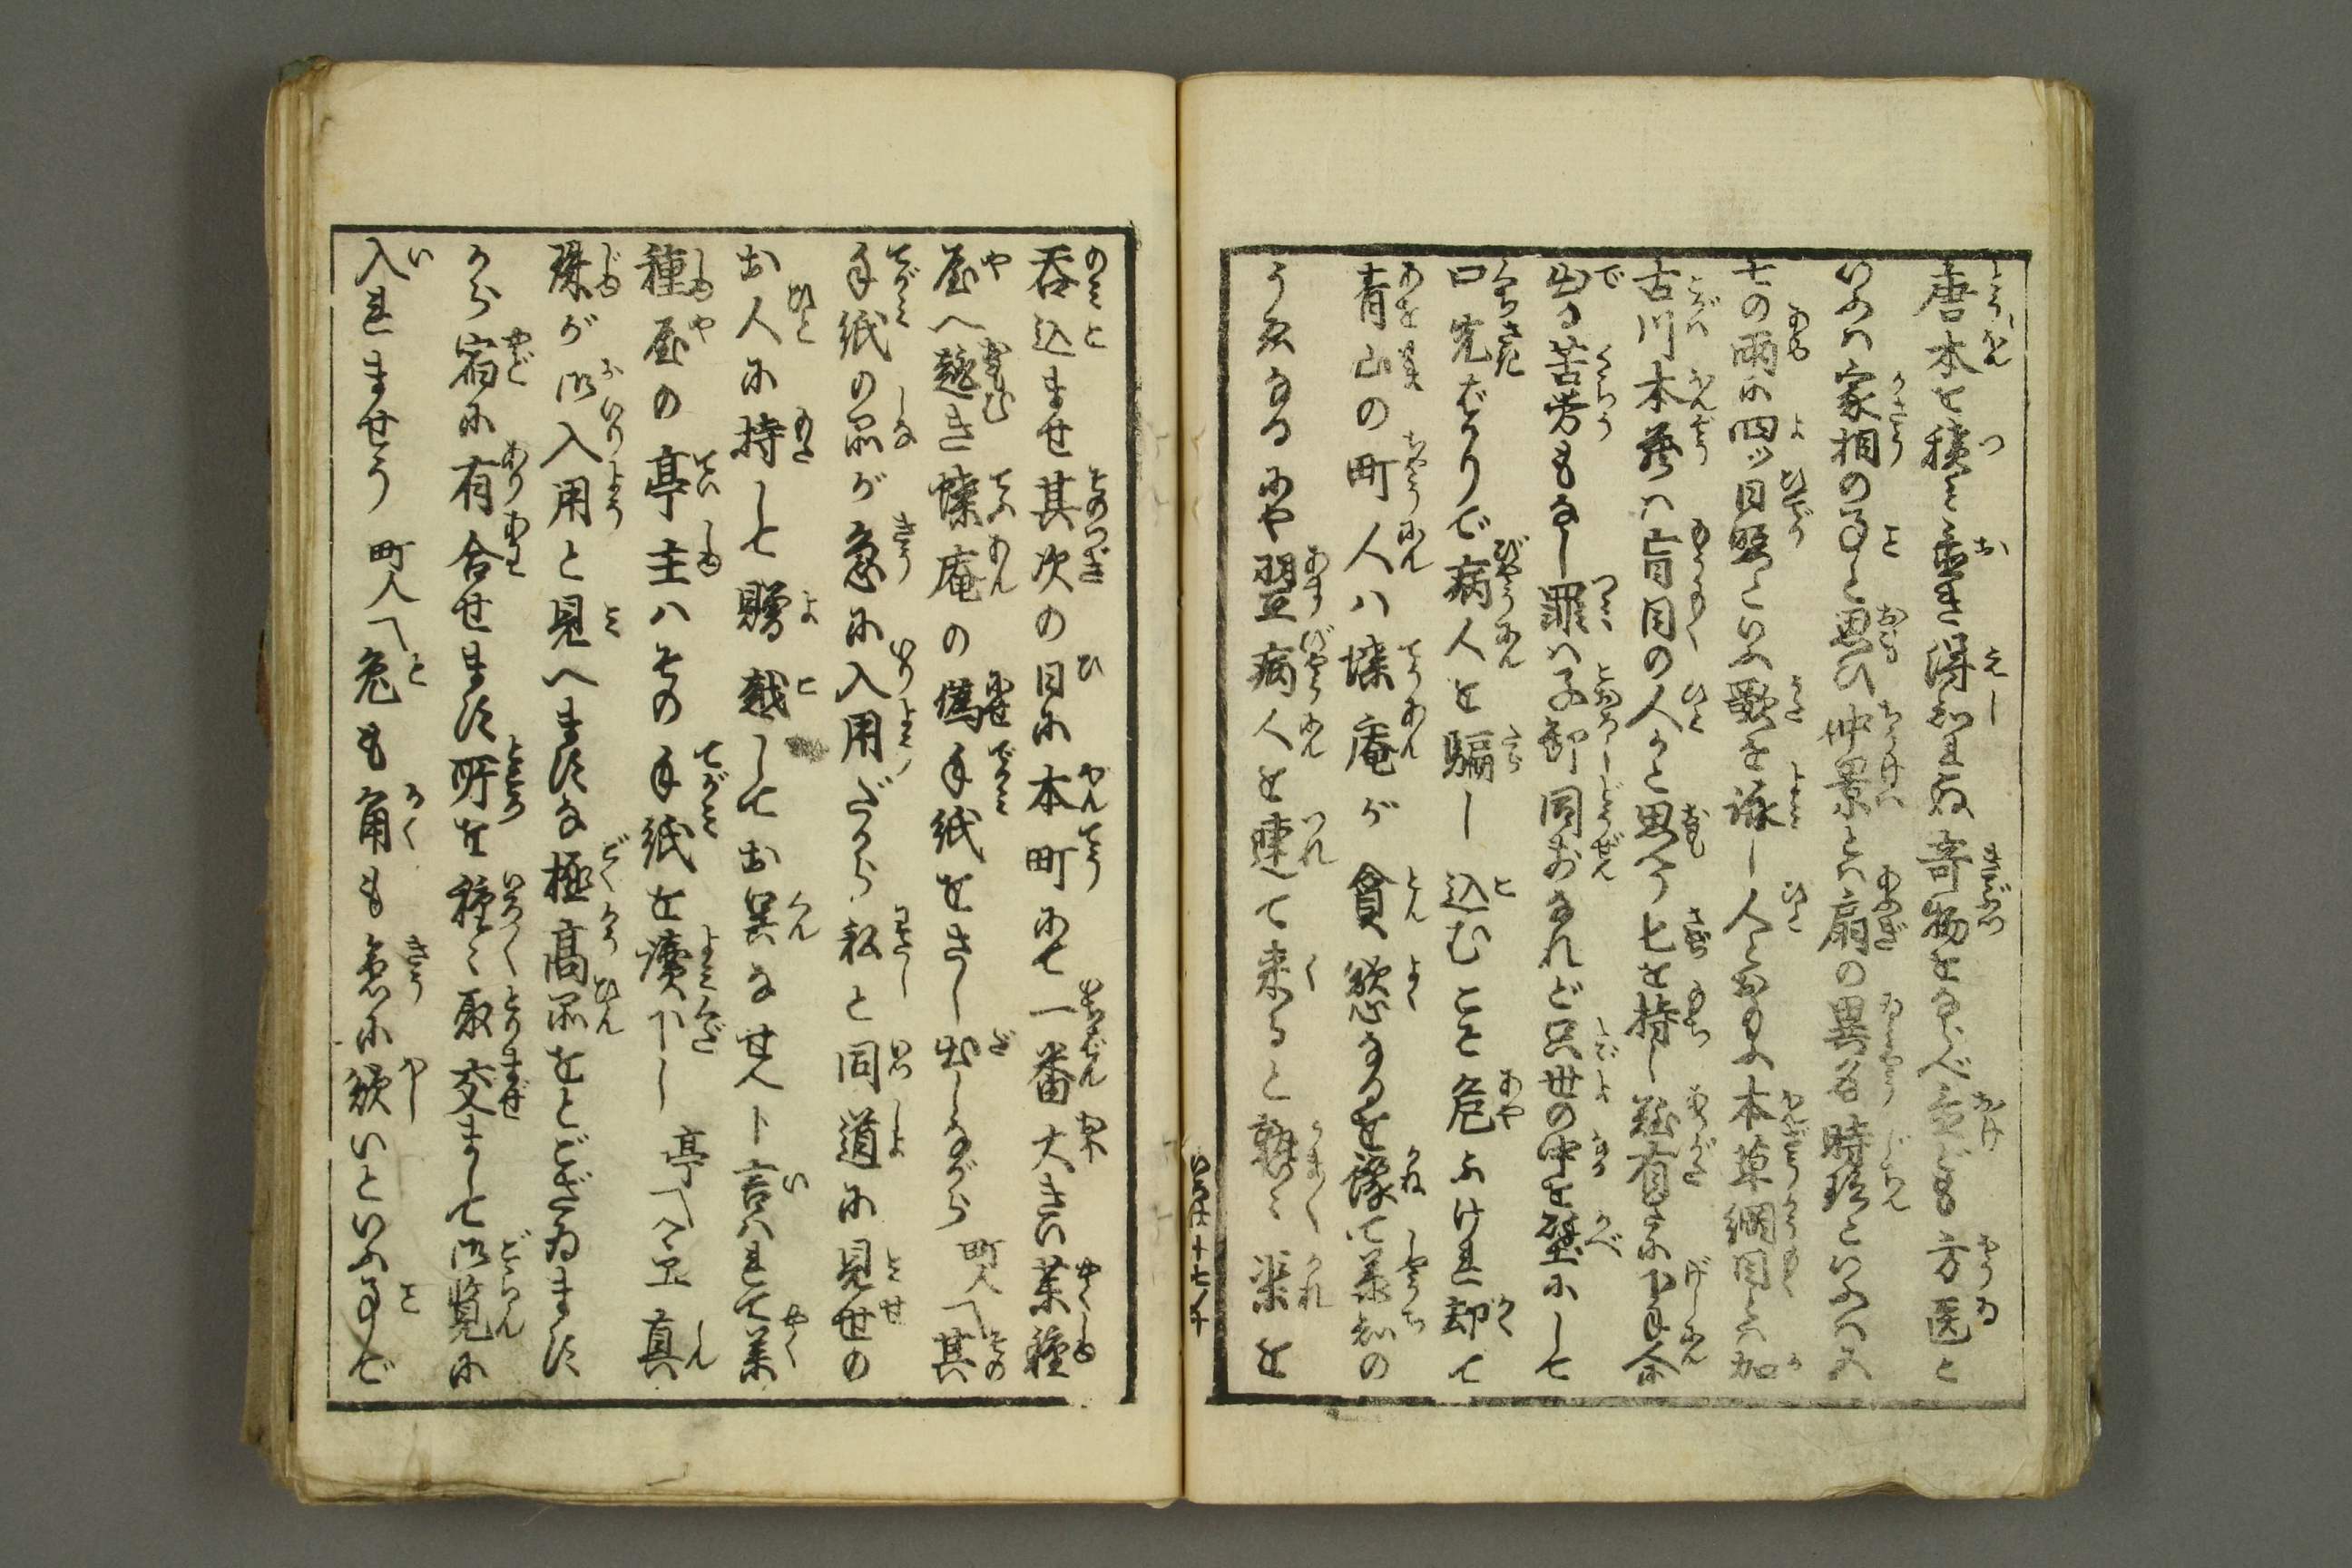 唐本を積み置き得知れぬ奇物をならべ立ても方医と
いふハ家相の事と思ひ仲景とハ扇の異名時珍といふハ
七の雨に四ッ日照といふ歌を詠し人とおもふ本草綱目とハ加
古川本蔵ハ盲目の人かと思ふ七を持し疵有る下手余
出る苦労もなし罪ハ子卸同ぜんなれど只世の中を壁にして
口先ばかりで病人を騙し込むこそ危ふけれ却て
青山の町人ハ蝶庵が貪慾なるを豫て承知の
うへなるにや翌病人を連て来ると難々楽を
呑込ませ其次の日に本町にて一番大きい薬種
屋へ趣き蝶庵の偽手紙をさし出しながら 町人〽其
手紙の品が急に入用だから私と同道に見世の
お人に持して贈越してお呉なせへト言ハれて薬
種屋の亭主ハその手紙を讀下し 亭〽ヘヱ真
珠が御入用と見へます な極高品をとござゐます
から宿に有合せます所を種々取交まして御覧に
入れませう 町人〽兎も角も急に欲いといふ事で